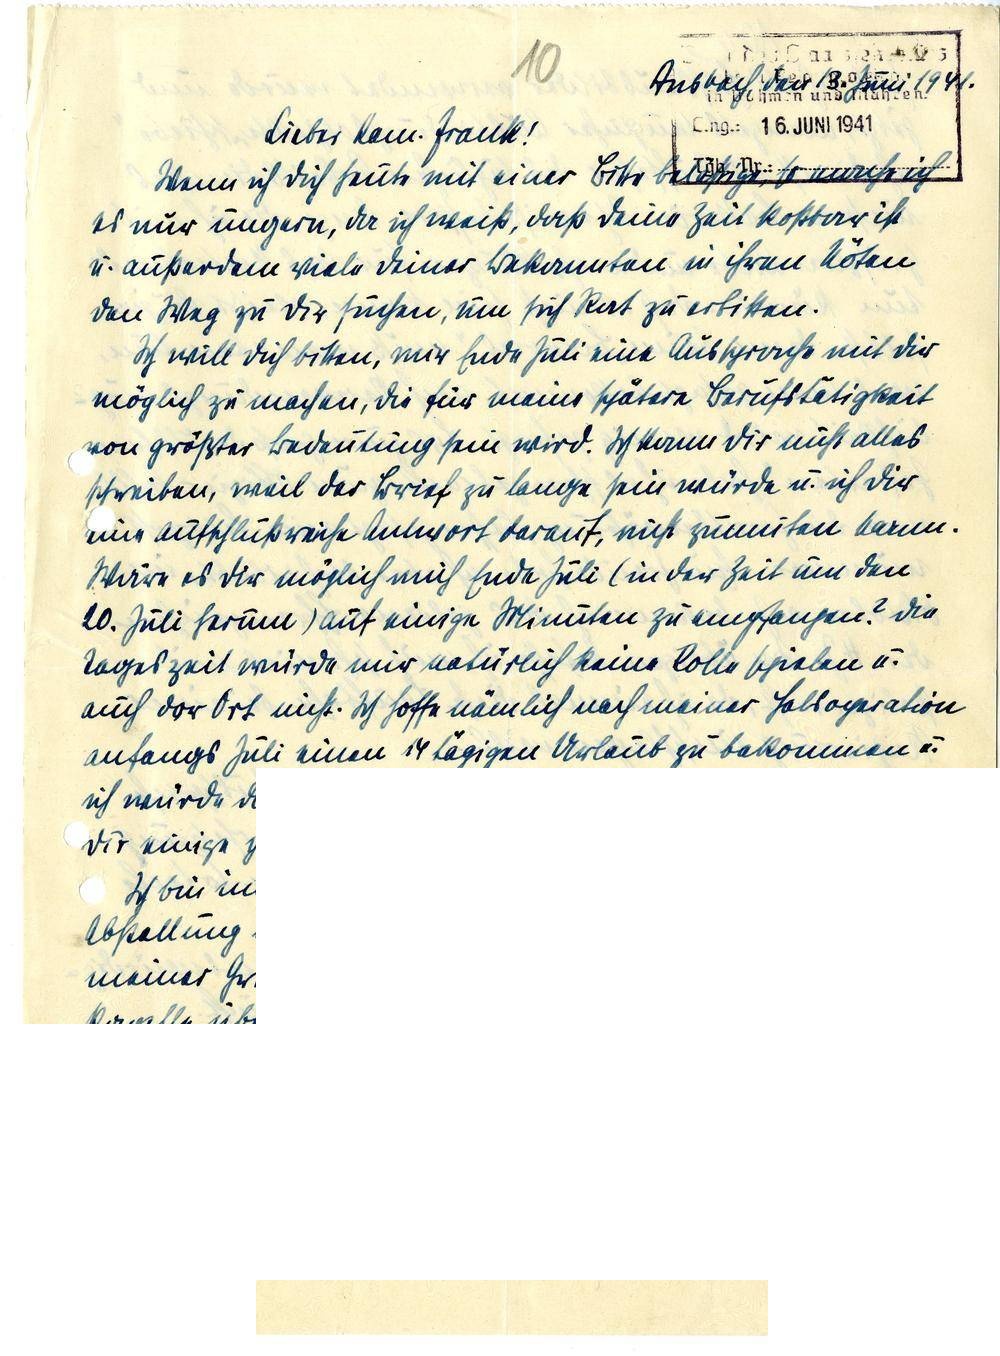 10
Ansbach, den 13. Juni 1941.
in Böhmen und Mähren.
Eing.: 16. JUNI 1941
Tgb. Nr.:
Lieber Kam. Frank!
Wenn ich Dich heute mit einer Bitte belästige, so mache ich
es nur ungern, da ich weiß, daß Deine Zeit kostbar ist
u. außerdem viele Deiner Bekannten in ihren Nöten
den Weg zu Dir suchen, um sich Rat zu erbitten.
Ich will Dich bitten, mir Ende Juli eine Aussprache mit Dir
möglich zu machen, die für meine spätere Berufstätigkeit
von größter Bedeutung sein wird. Ich kann Dir nicht alles
schreiben, weil der Brief zu lange sein würde u. ich Dir
eine aufschlußreiche Antwort darauf, nicht zumuten kann.
Wäre es Dir möglich mich Ende Juli (in der Zeit um den
20. Juli herum) auf einige Minuten zu empfangen? Die
Tageszeit würde mir natürlich keine Rolle spielen u.
auch der Ort nicht. Ich hoffe nämlich nach meiner Halsoperation
anfangs Juli einen 14 tägigen Urlaub zu bekommen u.
ich würde
Dir einige
Ich bin
Abstellung
meiner